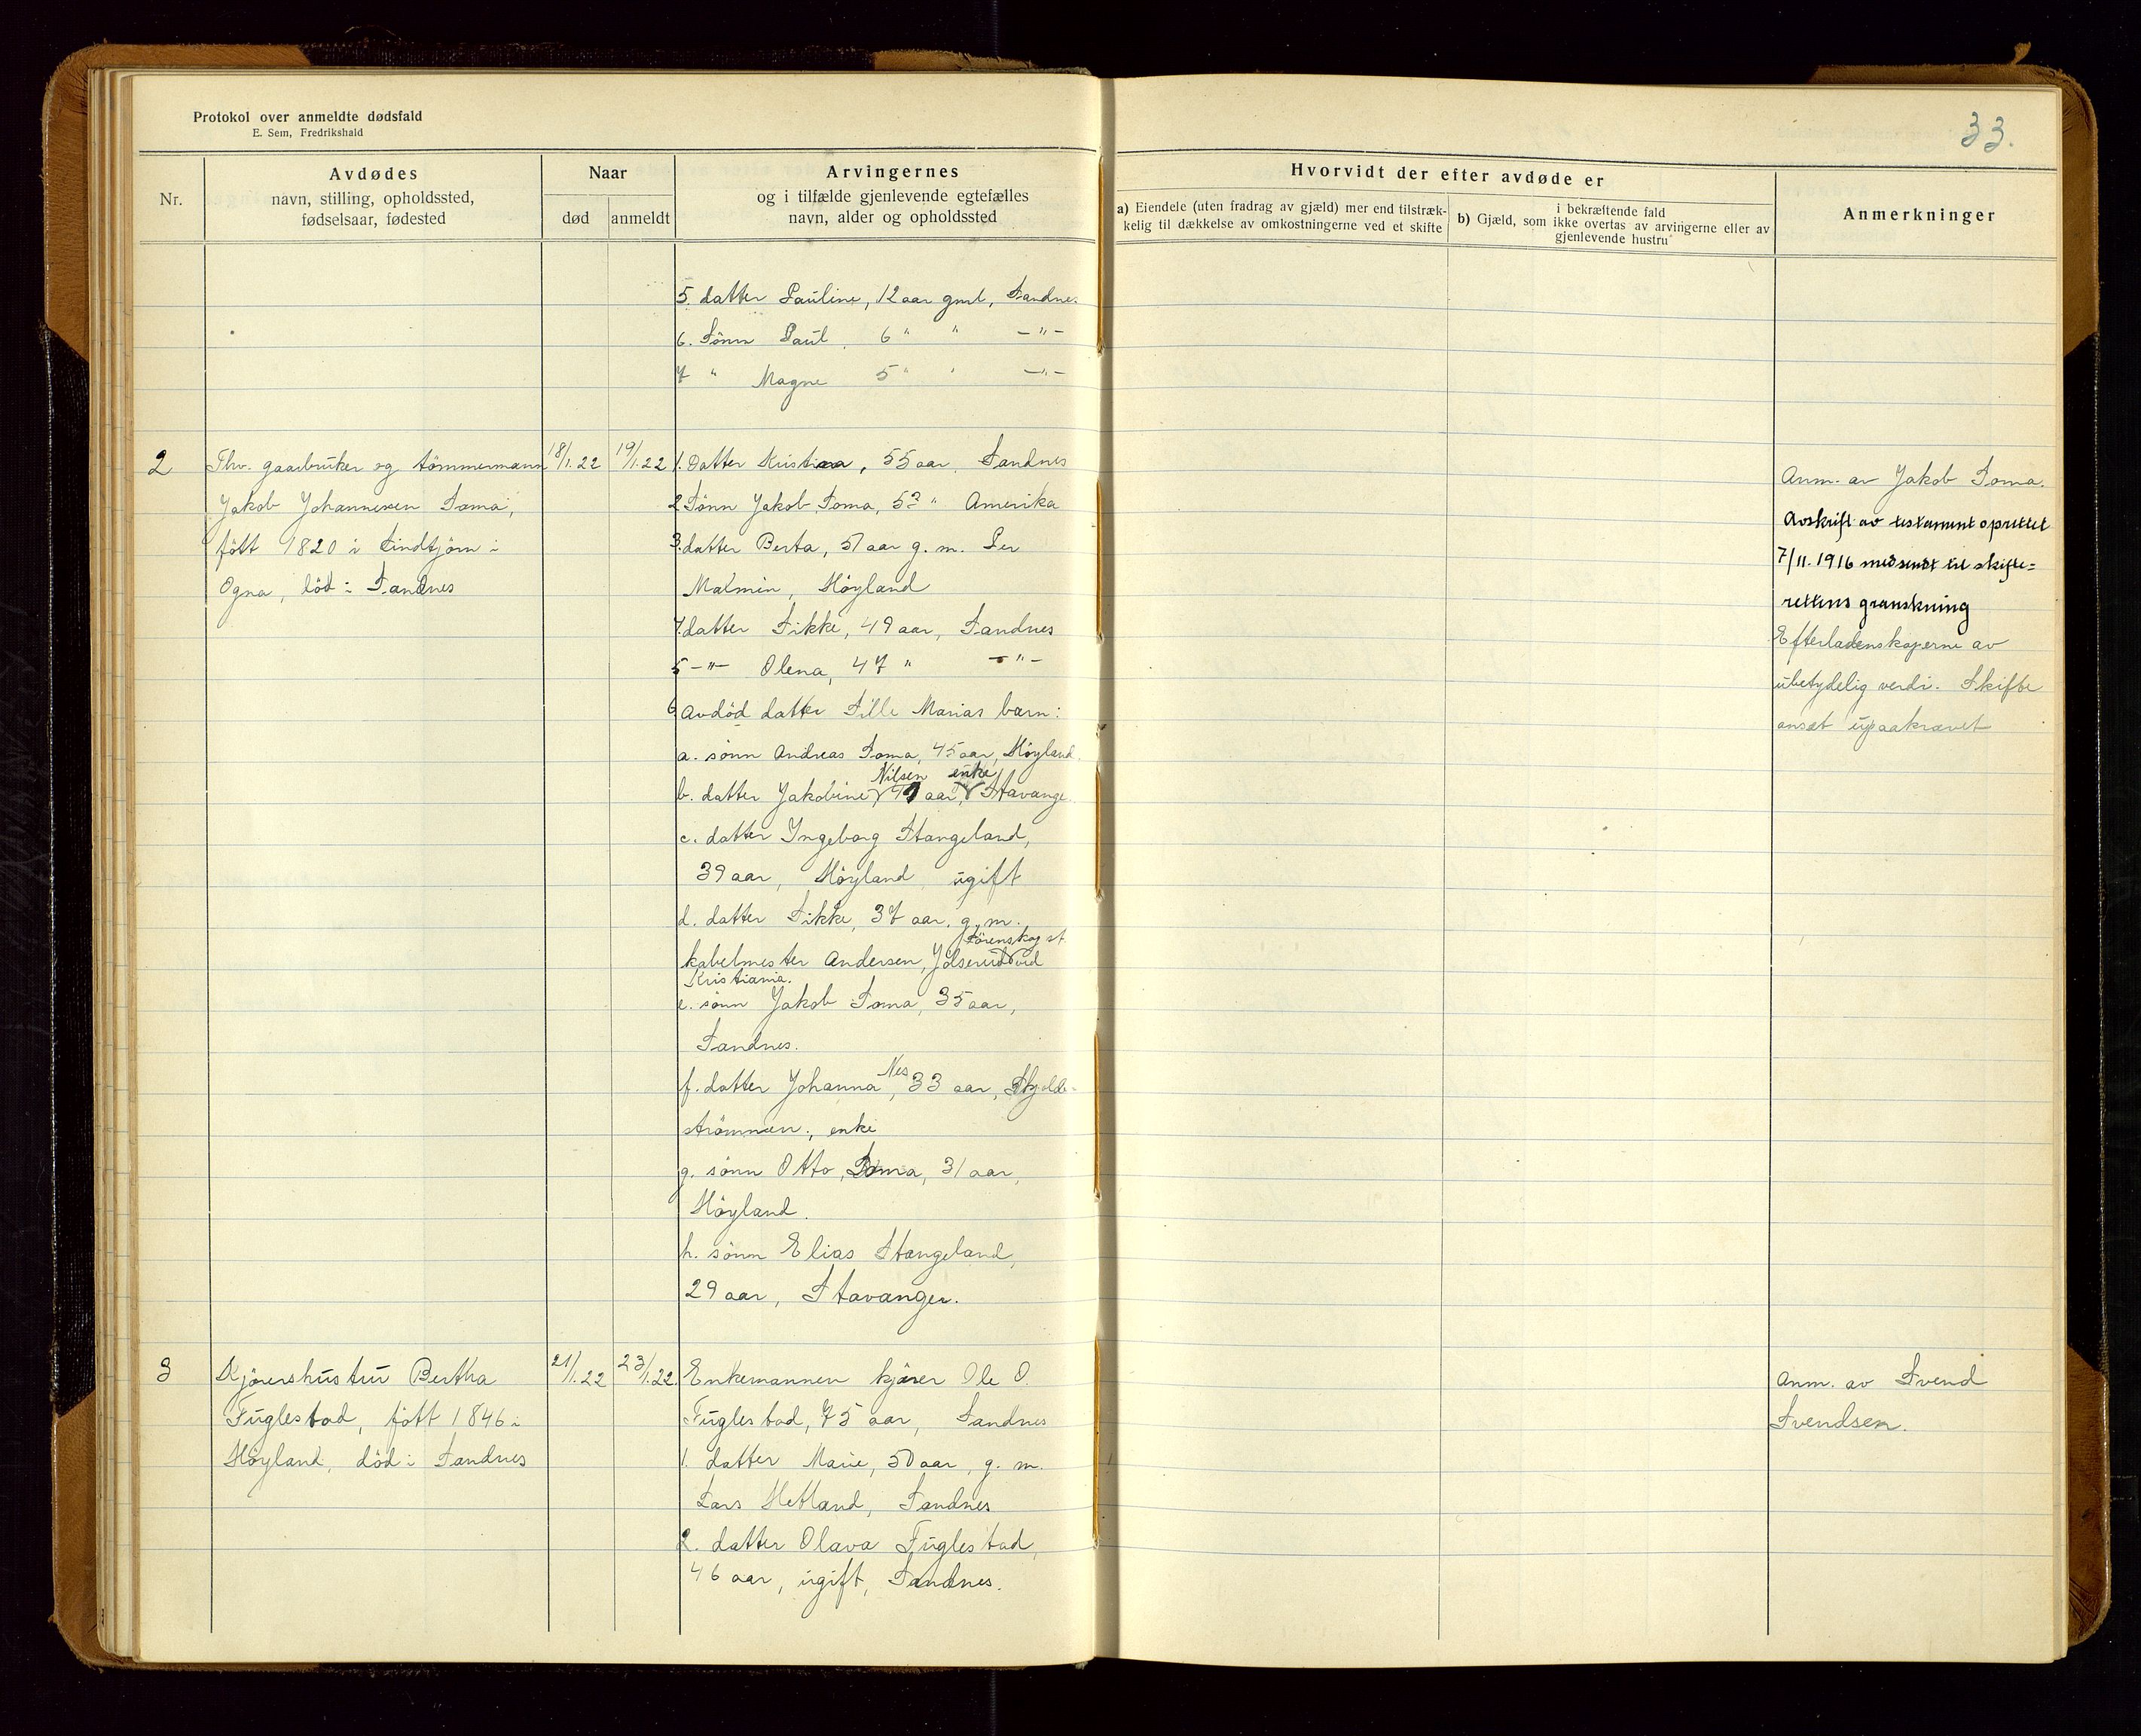 Protokol over anmeldte dødsfald
E. Sem, Fredrikshald
33.
Nr.
Avdødes
navn, stilling, opholdssted,
fødselsaar, fødested
Naar
død
anmeldt
Arvingernes
og i tilfælde gjenlevende egtefælles
navn, alder og opholdssted
Hvorvidt der efter avdøde er
a) Eiendele (uten fradrag av gjæld) mer end tilstræk-
kelig til dækkelse av omkostningerne ved et skifte
i bekræftende fald
b) Gjæld, som ikke overtas av arvingerne eller av
gjenlevende hustru
Anmerkninger
5. datter Pauline, 12 aar gml, Sandnes
6. Sönn Paul, 6 " " -"-
7 " Magne 5 " " -"-
2
Fhv. gaarbruker og tömmermann
Jakob Johannesen Soma,
fött 1820 i Lindtjörn i
Ogna, död i Sandnes
18/1.22
19/1.22
1. Datter Kristina, 55 aar, Sandnes
2 Sönn Jakob Soma, 52 " Amerika
3. datter Berta, 51 aar g. m. Per
Malmin, Höyland
4. datter Sikke, 49 aar, Sandnes
5 -"- Olena, 47 " -"-
6 Avdöd datter Sille Marias barn:
a. sönn Andreas Soma, 45 aar, Höyland.
Nilsen enke
b. datter Jakobine 41 aar, Stavanger
c. datter Ingeborg Stangeland,
39 aar, Höyland ugift
d. datter Sikke, 37 aar, g. m.
Lörenskog st
kabelmester Andersen, Jolserud ved
Kristiania.
e. sönn Jakob Soma, 35 aar,
Sandnes.
Nes
f. datter Johanna, 33 aar, Skjolde-
strömmen, enke
g. sönn Otto, Soma, 31 aar,
Höyland.
h. sönn Elias Stangeland,
29 aar, Stavanger.
Anm. av Jakob Soma.
Avskrift av testament oprettet
7/11. 1916 medsendt til skifte=
rettens granskning
Efterladenskaperne av
ubetydelig verdi. Skifte
anset upaakrævet
3
Kjörershustru Bertha
Fuglestad, fött 1846 i
Höyland, död i Sandnes
21/1.22
23/1.22.
Enkemannen kjörer Ole O.
Fuglestad, 75 aar, Sandnes
1. datter Marie, 50 aar, g. m.
Lars Hetland, Sandnes
2. datter Olava Fuglestad,
46 aar, ugift, Sandnes.
Anm. av Svend
Svendsen.